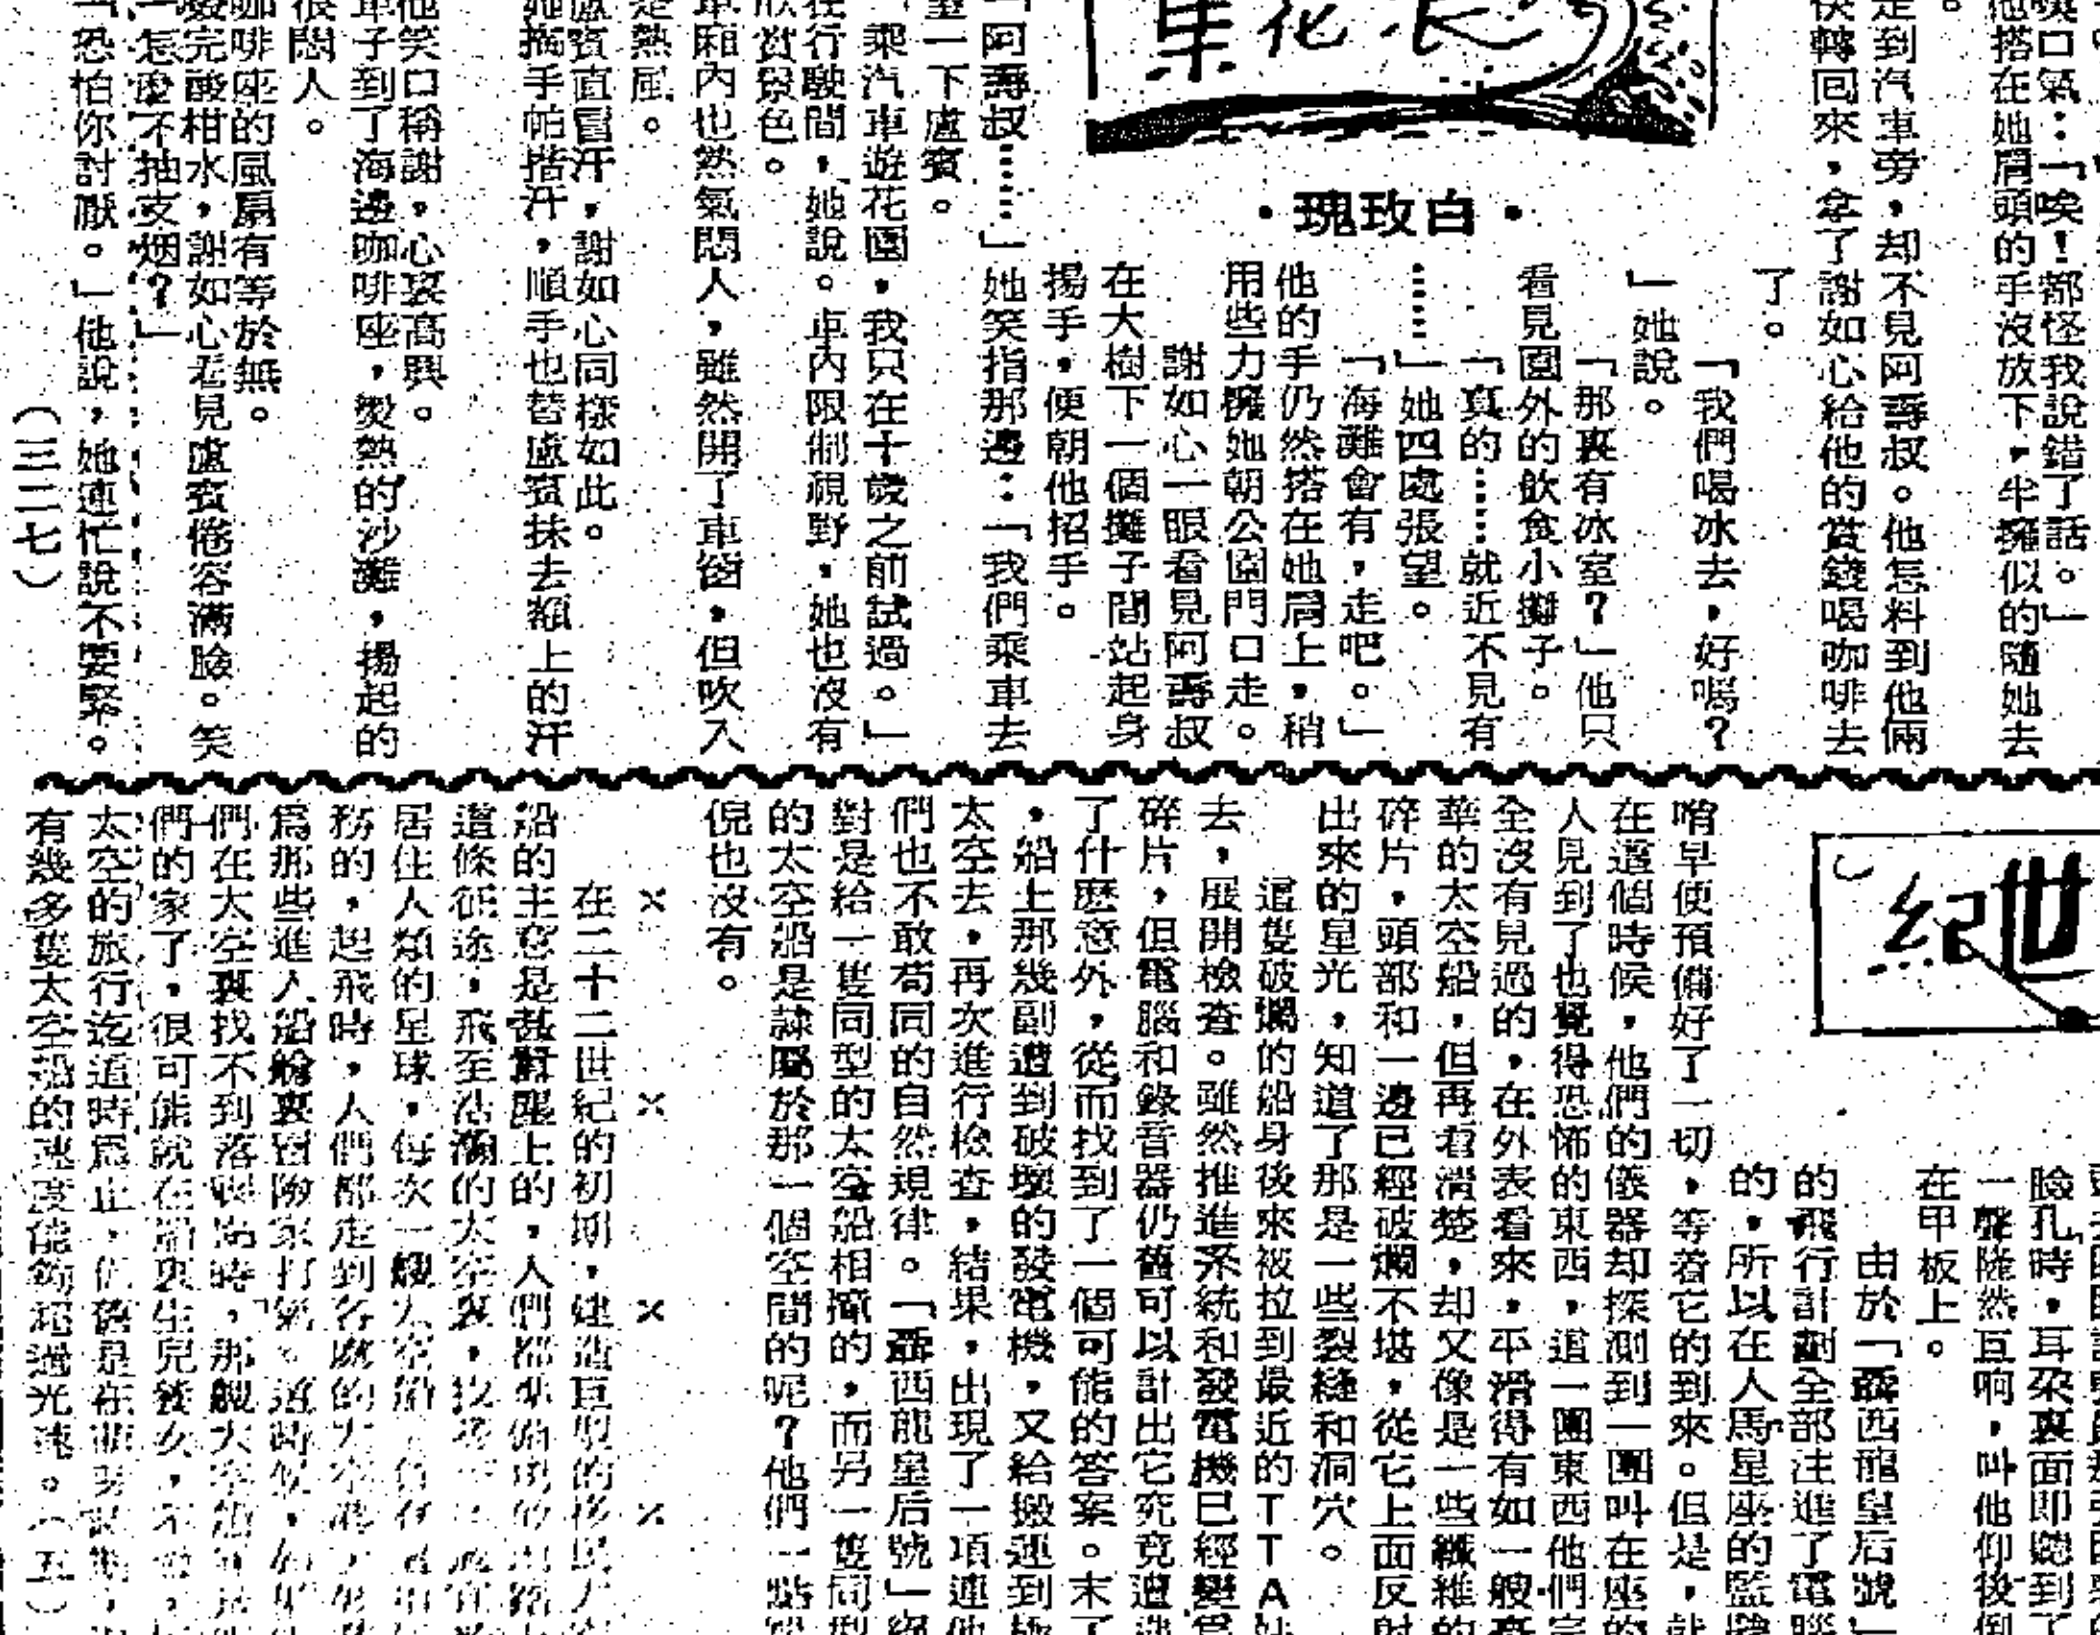 喚口氣：「唉！都怪我說錯了話。」
他搭在她肩頭的手沒放下，半擁似的隨她去
走到汽車旁，却不見阿壽叔。他怎料到他倆
快轉回來，拿了謝如心給他的賞錢喝咖啡去
了。
「我們喝冰去，好嗎？
」她說。
「那裏有冰室？」他只
看見園外的飲食小攤子。
「真的……就近不見有
……」她四處張望。
「海灘會有，走吧。」
他的手仍然搭在她肩上，稍
用些力擁她朝公園門口走。
謝如心一眼看見阿壽叔
在大樹下一個攤子間站起身
揚手，便朝他招手。
花
・白玫瑰・
「阿壽叔……」她笑指那邊：「我們乘車去
望一下盧賓。
「乘汽車遊花園，我只在十歲之前試過。」
在行駛間，她說。車內限制視野，她也沒有
欣賞景色。
車廂內也熱氣悶人，雖然開了車窗，但吹入
是熱風。
盧賓直冒汗，謝如心同樣如此。
她摘手帕揩汗，順手也替盧賓抹去額上的汗
他笑口稱謝，心裏高興。
車子到了海邊咖啡座，熨熱的沙灘，揚起的
很悶人。
咖啡座的風扇有等於無。
飲完酸柑水，謝如心看見盧賓倦容滿臉。笑
「怎麼不抽支烟？」
「恐怕你討厭。」他說，她連忙說不要緊。
（三二七）
世
紀
臉孔時，耳朶裏面即聽到了
一聲隆然巨响，叫他仰後倒
在甲板上。
由於「霹西龍皇后號」
的飛行計劃全部注進了電腦
的，所以在人馬星座的監
哨早便預備好了一切，等着它的到來。但是，就
在這個時候，他們的儀器却探測到一團叫在座的
人見到了也覺得恐怖的東西，這一團東西他們完
全沒有見過的，在外表看來，平滑得有如一艘豪
華的太空船，但再看清楚，却又像是一些纖維的
碎片，頭部和一邊已經破爛不堪，從它上面反射
出來的星光，知道了那是一些裂縫和洞穴。
這隻破爛的船身後來被拉到最近的TTA站
去，展開檢查。雖然推進系統和發電機已經變爲
碎片，但電腦和錄音器仍舊可以計出它究竟遭逢
了什麽意外，從而找到了一個可能的答案。末了
，船上那幾副遭到破壞的發電機，又給搬運到極
太空去，再次進行檢查，結果，出現了一項連他
們也不敢苟同的自然規律。「霹西龍皇后號」絕
對是給一隻同型的太空船相撞的，而另一隻同型
的太空船是隷屬於那一個空間的呢？他們一點端
倪也沒有。
× × × ×
在二十二世紀的初期，建造巨型的移民太空
船的主意是甚囂塵上的，人們都準備
這條征途，飛至浩瀚的太空裏，找尋
居住人類的星球，每次一艘太空船
務的，起飛時，人們都走到
爲那些進入船艙裏冒險家打氣。這時候，
們在太空裏找不到落脚點時，那艘太空船
們的家了，很可能就在船裏生兒養女，
太空的旅行迄這時爲止，仍舊是在萌芽
有幾多隻太空船的速度能夠超過光速。（五）